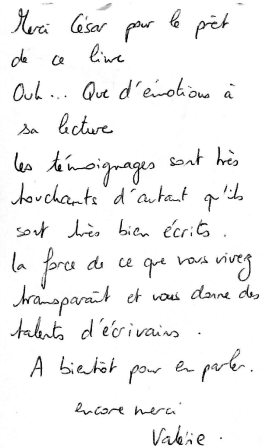 Merci César pour le prêt
de ce livre
Ouh... Que d'émotions à
sa lecture
les témoignages sont très
touchants d'autant qu'ils
sont très bien écrits.
la force de ce que vous vivez
transparaît et vous donne des
talents d'écrivains.
A bientôt pour en parler.
encore merci
Valérie.